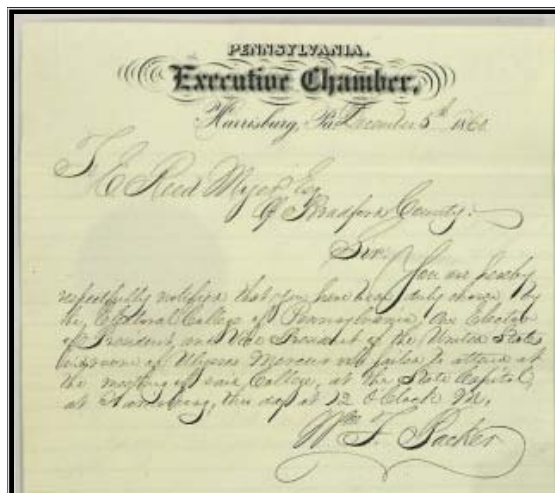 PENNSYLVANIA.
Executive Chamber,
Harrisburg, Pa. December 5th 1860
To E Reed Myer Esq
Of Bradford County.
Sir.
You are hereby
respectfully notified that you have been duly chosen by
the Electoral College of Pennsylvania, an Elector
of President, and Vice President of the United States
in room of Ulysses Mercur who failed to attend at
the meeting of said College, at the State Capitol,
at Harrisburg, this day at 12 O'Clock M.
Wm F. Packer